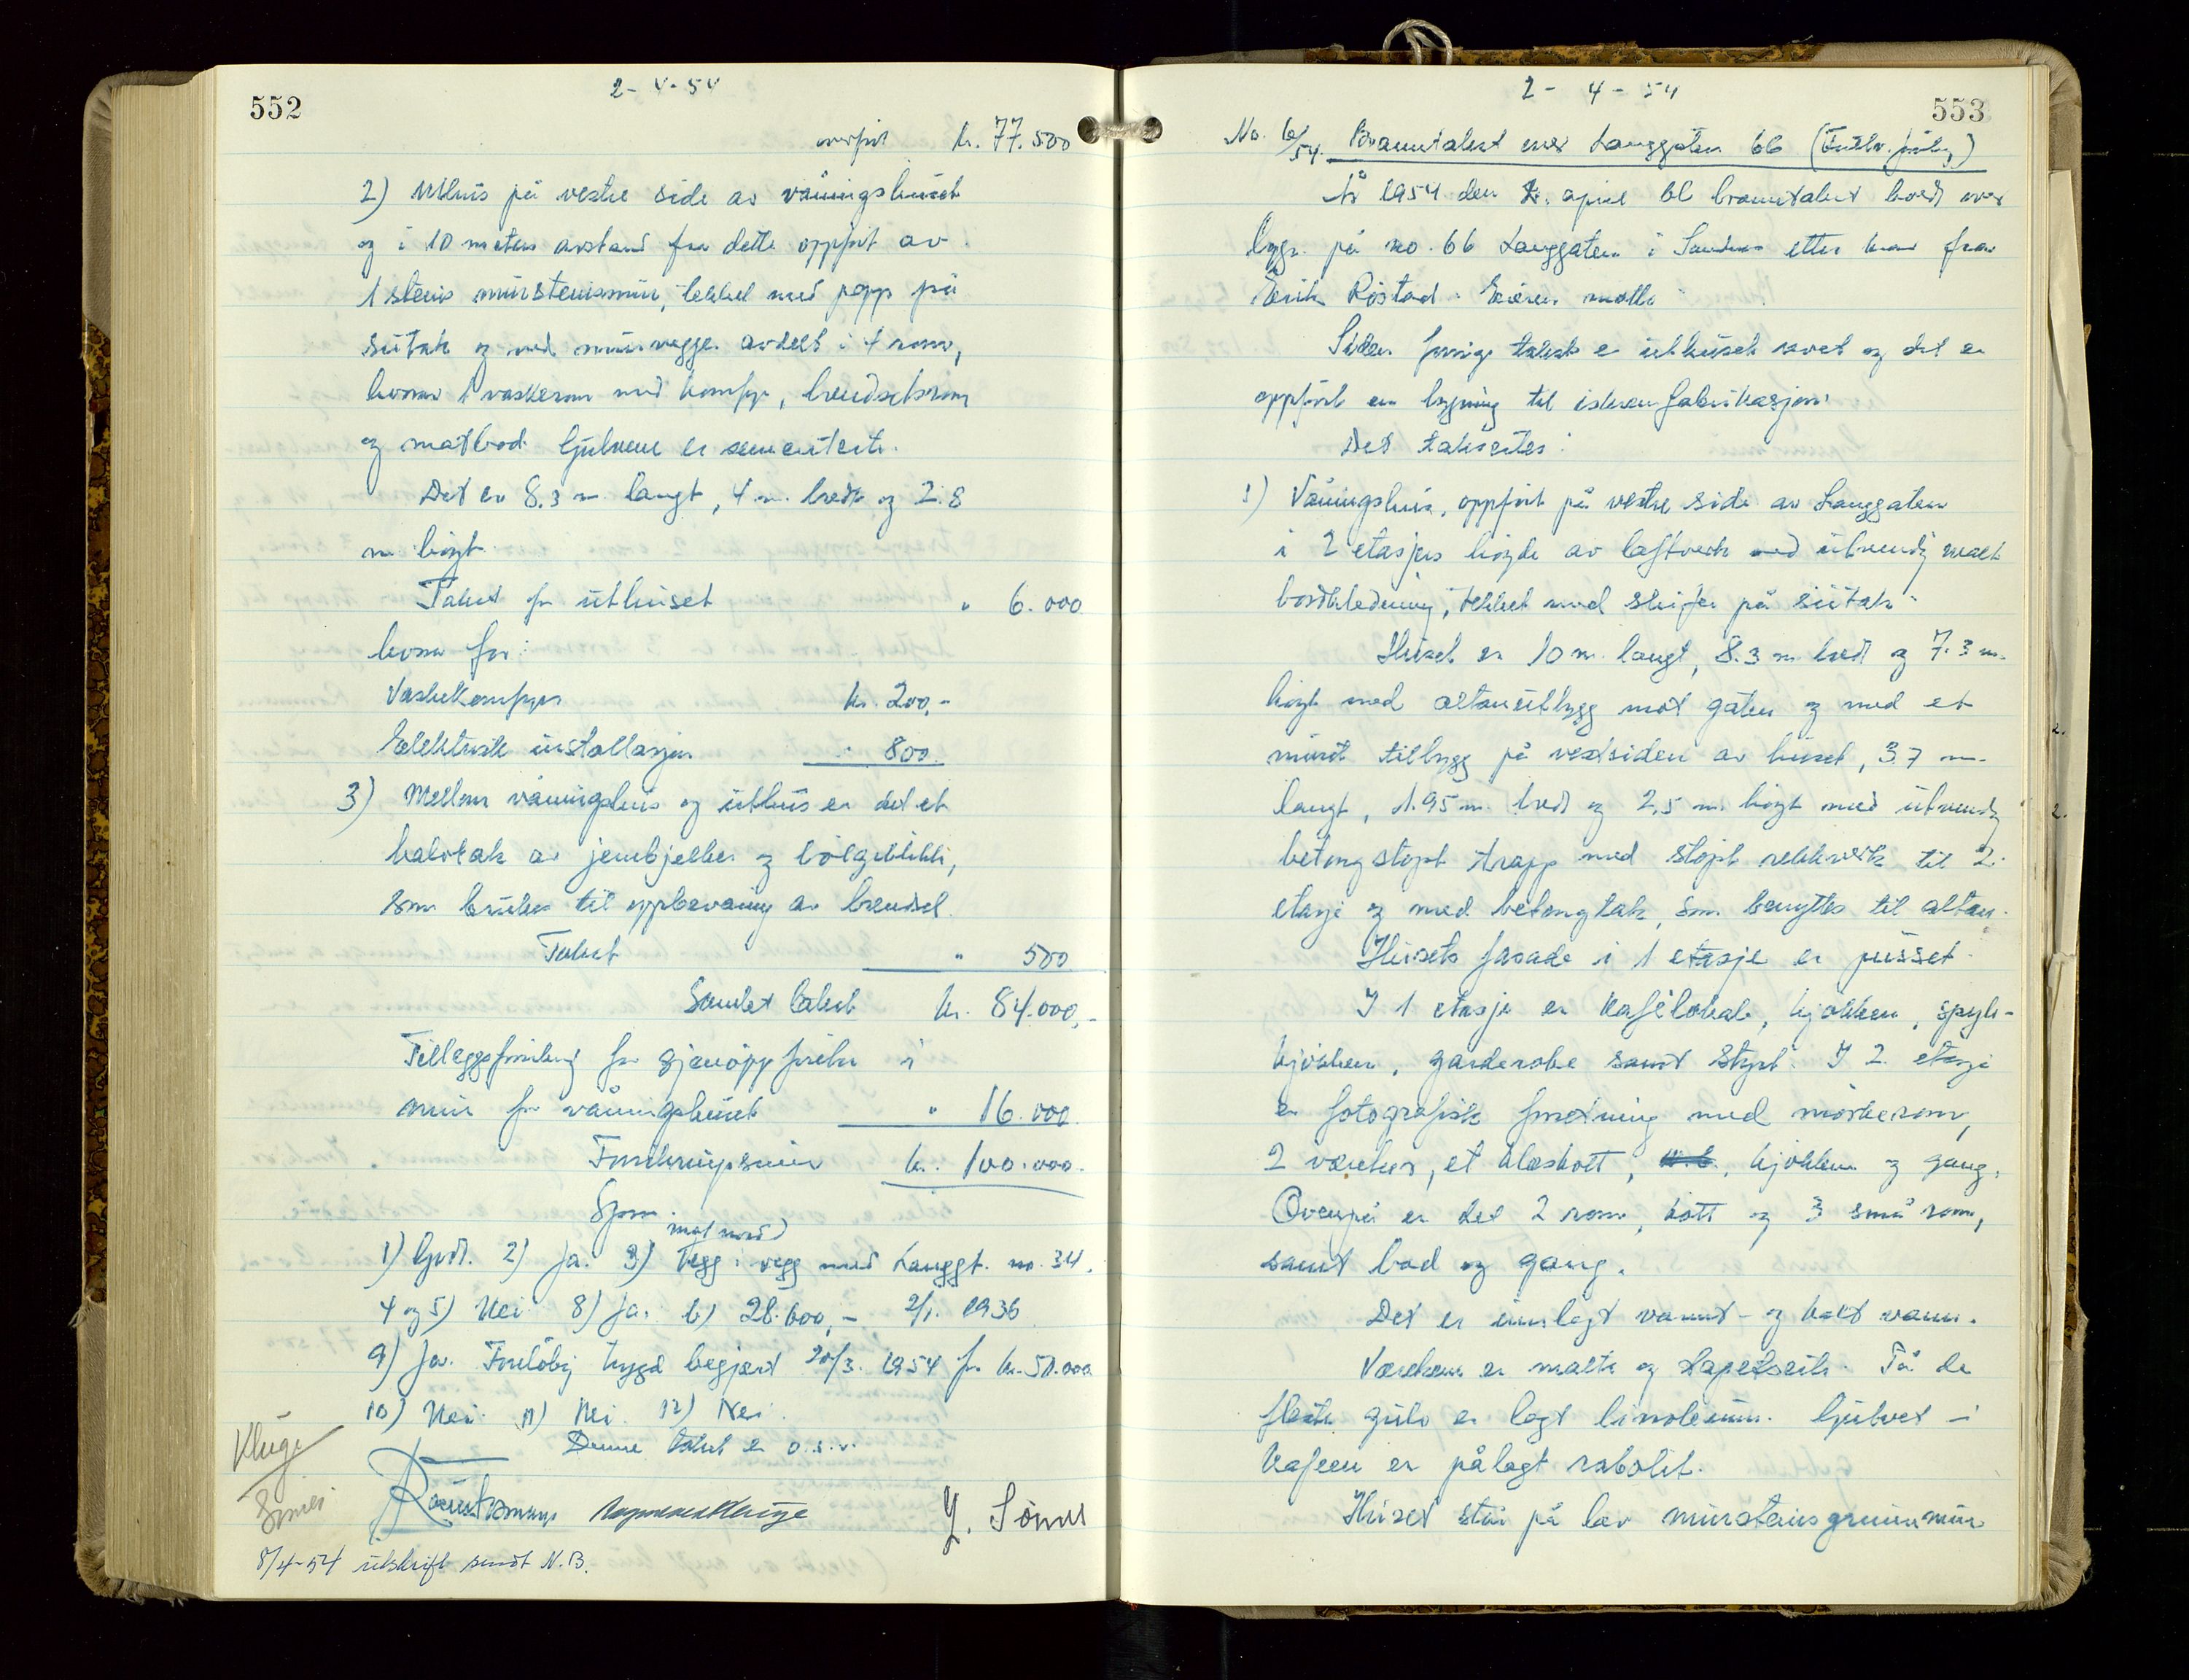 552
2-4-54
overført kr. 77.500
2) Uthus på vestre side av våningshuset
og i 10 meters avstand fra dette oppført av
1 stens murstensmur, tekket med papp på
sutak og med murvegger avdelt i 4 rom,
hvorav 1 vaskerom med komfyr, brendselsrom
og matbod. Gulvene er sementerte.
Det er 8.3 m. langt, 4 m. bredt og 2.8
m. høyt.
Takst for uthuset " 6.000
hvorav for:
Vaskekomfyr kr. 200,-
Elektrisk installasjon " 800.
3) Mellom våningshus og uthus er det et
halvtak av jernbjelker og bølgeblikk,
som brukes til oppbevaring av brendsel.
Takst " 500
Samlet takst kr. 84.000,-
Tilleggsforsikring for gjenoppførelse i
mur for våningshuset " 16.000
Forsikringssum kr. 100.000.
Spm.
mot nord
1) Godt. 2) Ja. 3) Vegg i vegg med Langgt. no. 34.
4 og 5) Nei. 8) Ja. b) 28.600,- 2/1. 1936
9) Ja. Foreløbig trygd begjært 20/3. 1954 for kr. 50.000
10) Nei. 11) Nei. 12) Nei.
Denne takst er o.s.v.
Kluge
Sømes
Y. Sømes
8/4-54 utskrift sendt N.B.
553
2-4-54
No. 6/54. Branntakst over Langgaten 66
År 1954 den 2. april ble branntakst holdt over
bygn. på no. 66 Langgaten i Sandnes etter krav fra
Eirik Røstad. Eieren møtte.
Siden forrige takst er uthuset revet og det er
oppført en bygning til iskremfabrikasjon.
Det takseres:
1) Våningshus, oppført på vestre side av Langgaten
i 2 etasjers høyde av laftverk med utvendig malt
bordkledning, tekket med skifer på sutak.
Huset er 10 m. langt, 8.3 m. bredt og 7.3 m.
høyt med altanutbygg mot gaten og med et
murt tilbygg på vestsiden av huset, 3.7 m.
langt, 1.95 m. bredt og 2,5 m. høyt med utvendig
betongstøpt trapp med støpt rekkverk til 2.
etasje og med betongtak, som benyttes til altan.
Husets fasade i 1 etasje er pusset.
I 1 etasje er kafélokale, kjøkken, spyle-
kjøkken, garderobe samt . I 2. etasje
er fotografisk forretning med mørkerom,
2 værelser, et kleskott, kjøkken og gang.
Ovenpå er det 2 rom, kott og 3 små rom,
samt bad og gang.
Det er innlagt varmt- og kaldt vann.
Værelsene er malte og tapetserte. På de
fleste gulv er lagt linoleum. Gulvet i
kafeen er pålagt .
Huset står på lav murstensgrunnmur